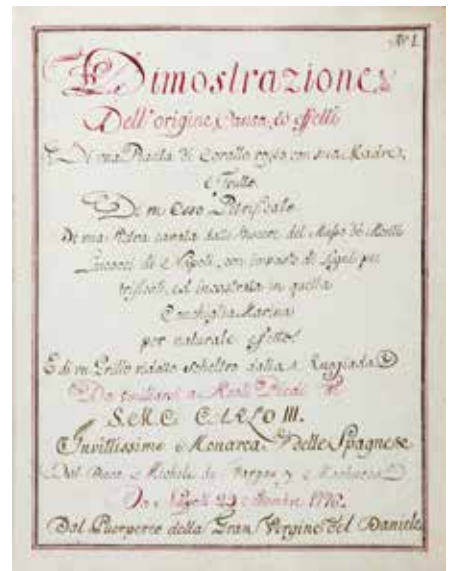 Nº I.
Dimostrazione
Dell'origine, Causa, ed effetti
Di una Pianta di Corallo rosso con sua Madre,
e Frutto.
De un Osso Petrificato
De una Pietra cavata dalle viscere del Masso di Monte
di Napoli, con impasto di legni pe
trificati, ed incastrata in quella
Conchiglia Marina
per naturale effetto.
E di un Grillo ridotto scheltro dalla Ruggiada
Reali Piedi
S.M.C. CARLO III.
Invittissimo Monarca delle Spagne
Dal Michele de Vargas y Machuca
Da Napoli 29
Dal Puerperio della Gran Vergine del Daniele